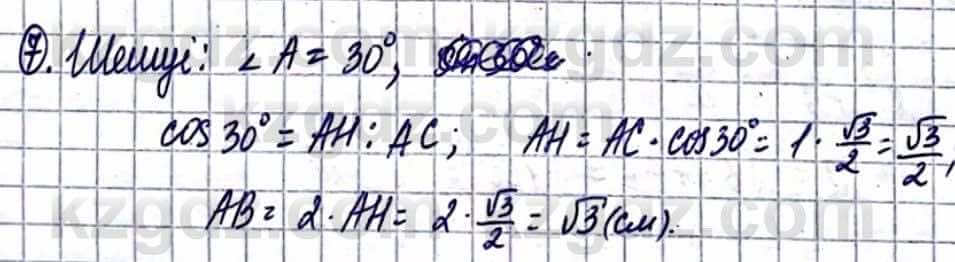 ⑦. Шешуі: ∠A = 30°,
cos 30° = AH : AC; AH = AC · cos 30° = 1 · √3/2 = √3/2,
AB = 2 · AH = 2 · √3/2 = √3 (см).
kzgdz.com